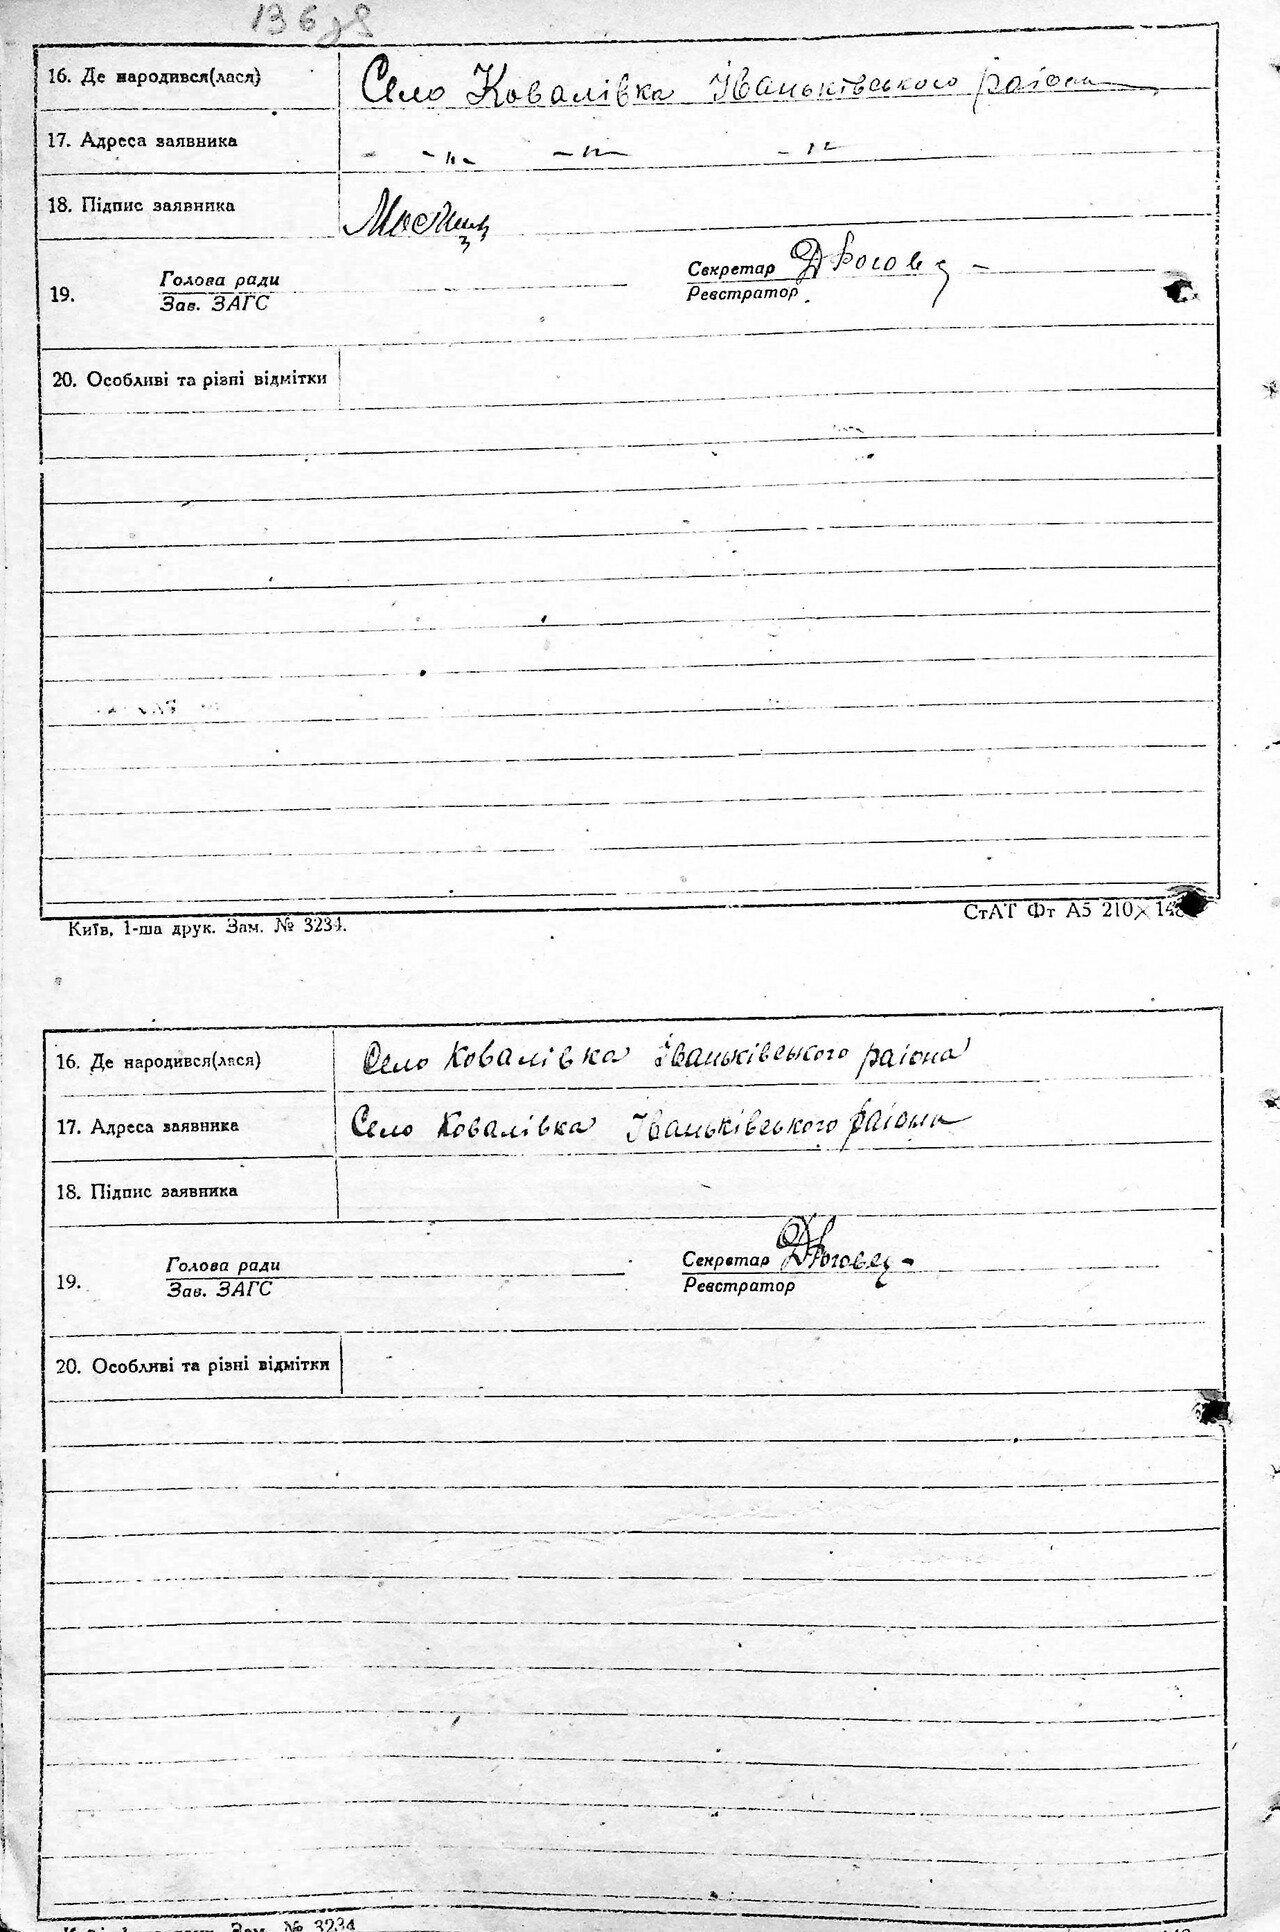 136
16. Де народився(лася) Село Ковалівка Іваньківського району
17. Адреса заявника - -"- -"- -"-
18. Підпис заявника
19. Голова ради Секретар Роговец
Зав. ЗАГС Реєстратор
20. Особливі та різні відмітки
Київ, 1-ша друк. Зам. № 3234. СтАТ Фт А5 210×148
16. Де народився(лася) Село Ковалівка Іваньківського района
17. Адреса заявника Село Ковалівка Іваньківського района
18. Підпис заявника
19. Голова ради Секретар Роговец
Зав. ЗАГС Реєстратор
20. Особливі та різні відмітки
Зам. № 3234